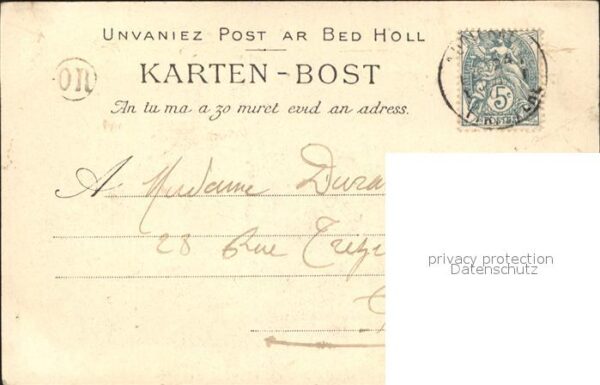 UNVANIEZ POST AR BED HOLL
KARTEN-BOST
OR
An tu ma a zo miret evid an adress.
5c
POSTE
A Madame Dura
28 Rue
privacy protection
Datenschutz